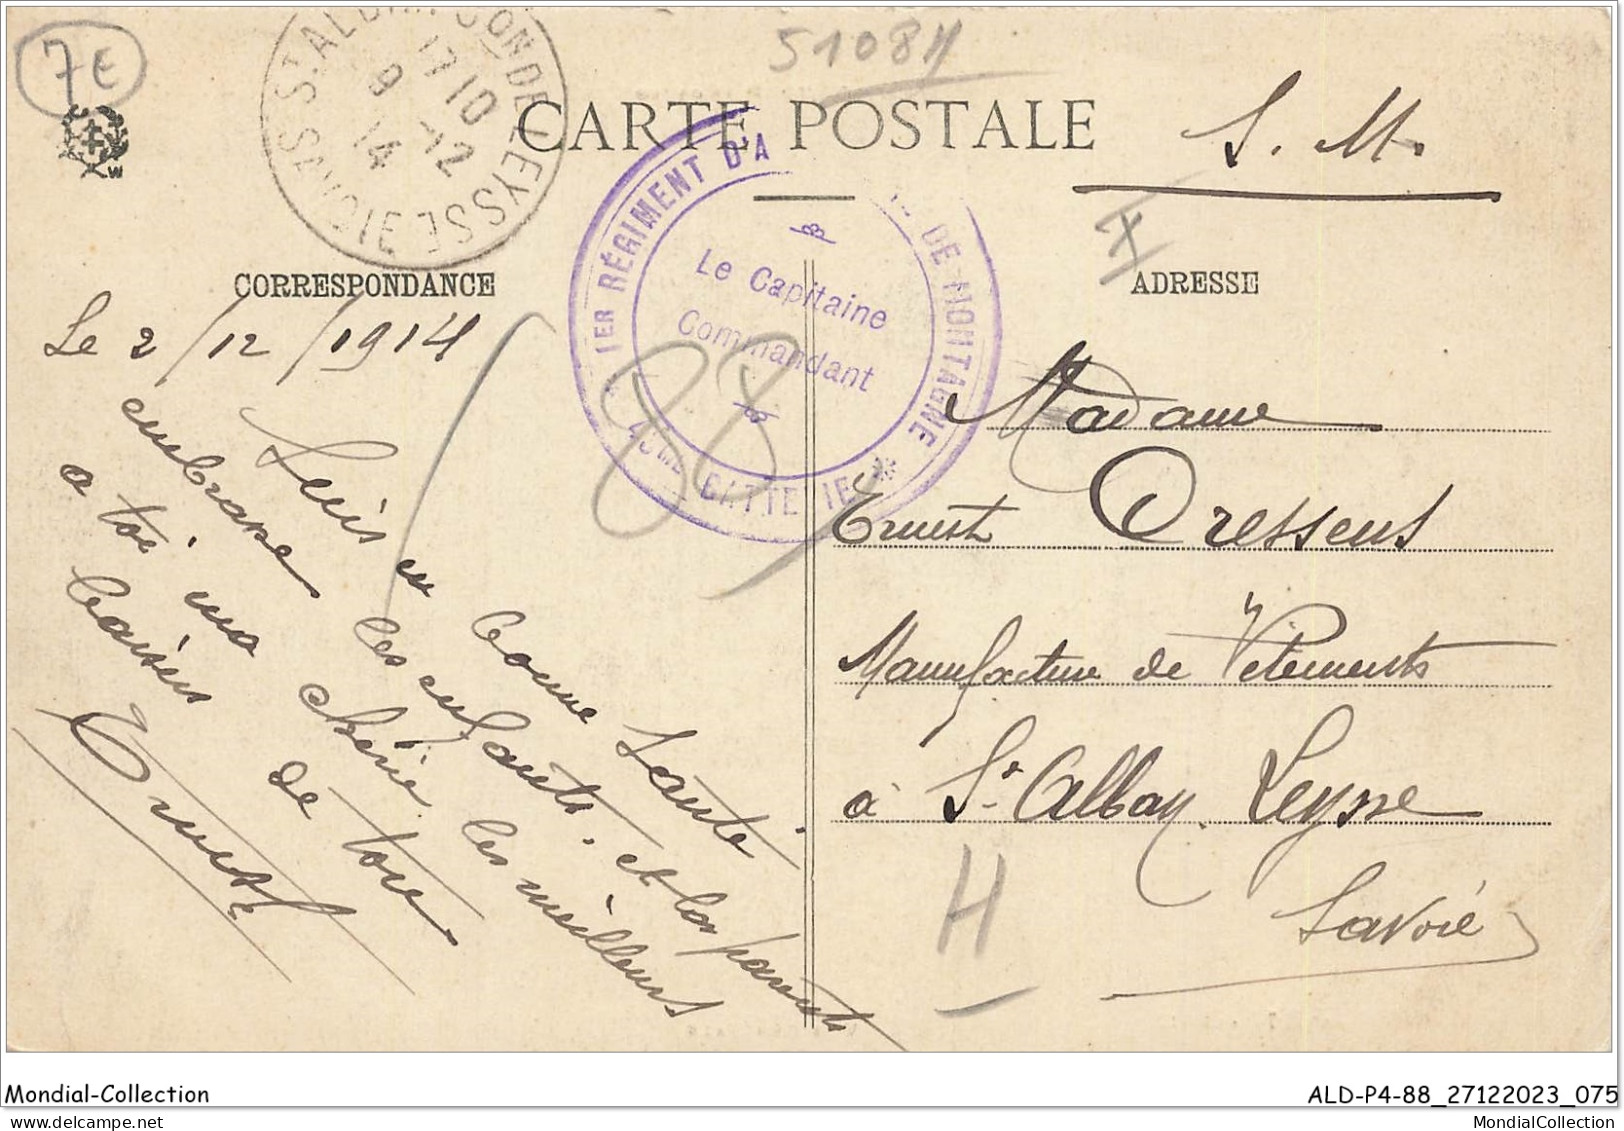 7E
51084
ST ALBAN SON DE LEYSSE
17 10
9 -12
14
SAVOIE
CARTE POSTALE
S. M.
1ER RÉGIMENT D'A DE MONTAGNE
Le Capitaine
Commandant
BATTE IE
88
CORRESPONDANCE
ADRESSE
Le 2/12/1914
Suis en bonne santé
embrasse les enfants. et les parents
a toi ma chérie les meilleurs
baisers de ton
Ernest
Madame
Ernest Dressens
Manufacture de Vêtements
à St Alban Leysse
Savoie
H
W
Mondial-Collection
ALD-P4-88_27122023_075
MondialCollection
MondialCollection